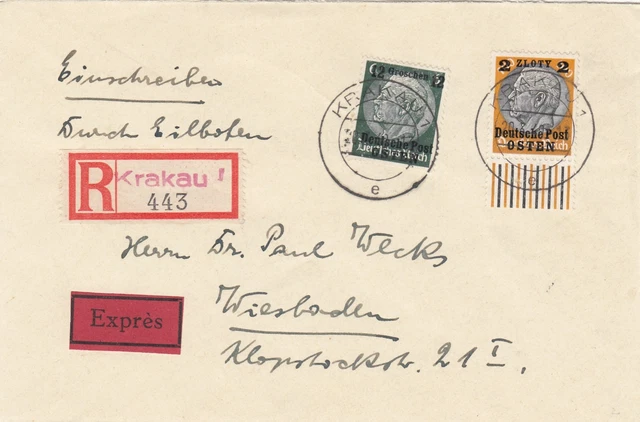 Einschreiben
Durch Eilboten
R Krakau 1
443
12 Groschen 12
Deutsche Post
OSTEN
2 ZLOTY 2
Deutsche Post
OSTEN
KRAKAU 1
e
KRAKAU 1
e
Herrn Dr. Paul Wecks
Wiesbaden
Klopstockstr. 21 I.
Exprès